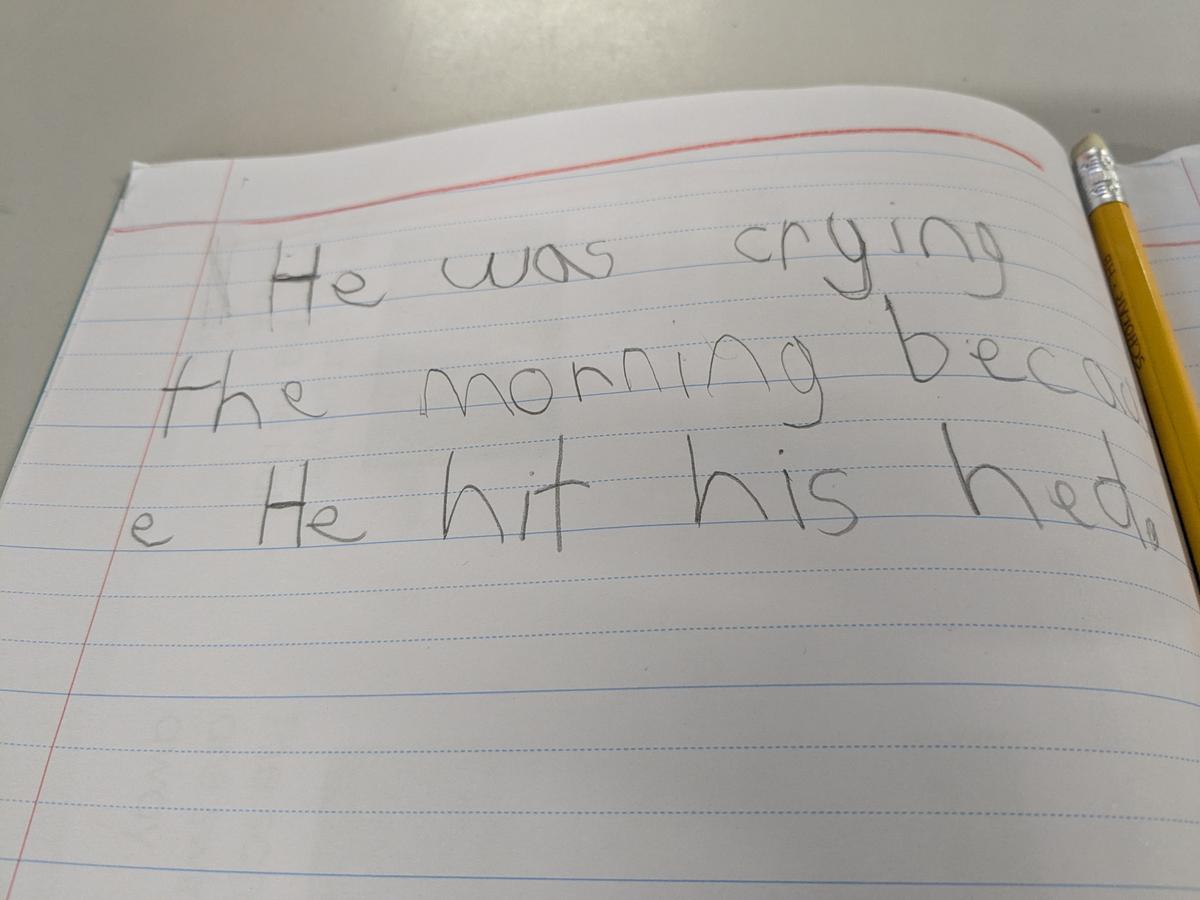 He was crying
the morning becau
e He hit his hed.
SCHOLAR HB